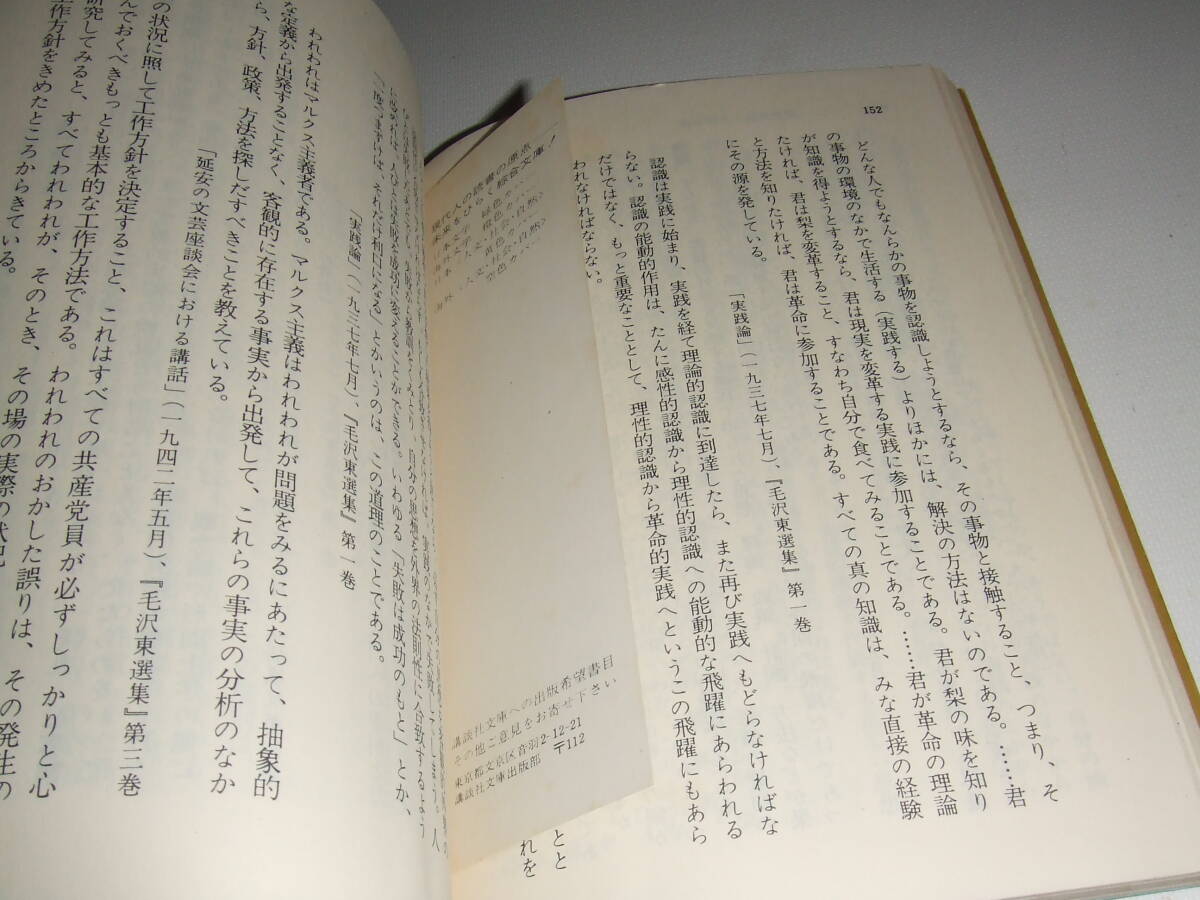 152
どんな人でもなんらかの事物を認識しようとするなら、その事物と接触すること、つまり、そ
の事物の環境のなかで生活する（実践する）よりほかには、解決の方法はないのである。……君
が知識を得ようとするなら、君は現実を変革する実践に参加することである。君が梨の味を知り
たければ、君は梨を変革すること、すなわち自分で食べてみることである。……君が革命の理論
と方法を知りたければ、君は革命に参加することである。すべての真の知識は、みな直接の経験
にその源を発している。
「実践論」（一九三七年七月）、『毛沢東選集』第一巻
認識は実践に始まり、実践を経て理論的認識に到達したら、また再び実践へもどらなければな
らない。認識の能動的作用は、たんに感性的認識から理性的認識への能動的な飛躍にあらわれる
だけではなく、もっと重要なこととして、理性的認識から革命的実践へというこの飛躍にもあら
われなければならない。
とと
れを
現代人の読書の原点
未来をひらく綜合文庫！
講談社文庫への出版希望書目
その他ご意見をお寄せ下さい
東京都文京区音羽2-12-21
講談社文庫出版部 〒112
に改めれば、
「一度つまずけば、それだけ利口になる」とかいうのは、この道理のことである。
「実践論」（一九三七年七月）、『毛沢東選集』第一巻
われわれはマルクス主義者である。マルクス主義はわれわれが問題をみるにあたって、抽象的
な定義から出発することなく、客観的に存在する事実から出発して、これらの事実の分析のなか
ら、方針、政策、方法を探しだすべきことを教えている。
「延安の文芸座談会における講話」（一九四二年五月）、『毛沢東選集』第三巻
の状況に照して工作方針を決定すること、これはすべての共産党員が必ずしっかりと心
んでおくべきもっとも基本的な工作方法である。われわれのおかした誤りは、その発生の
研究してみると、すべてわれわれが、そのとき、その場の実際の状況
工作方針をきめたところからきている。